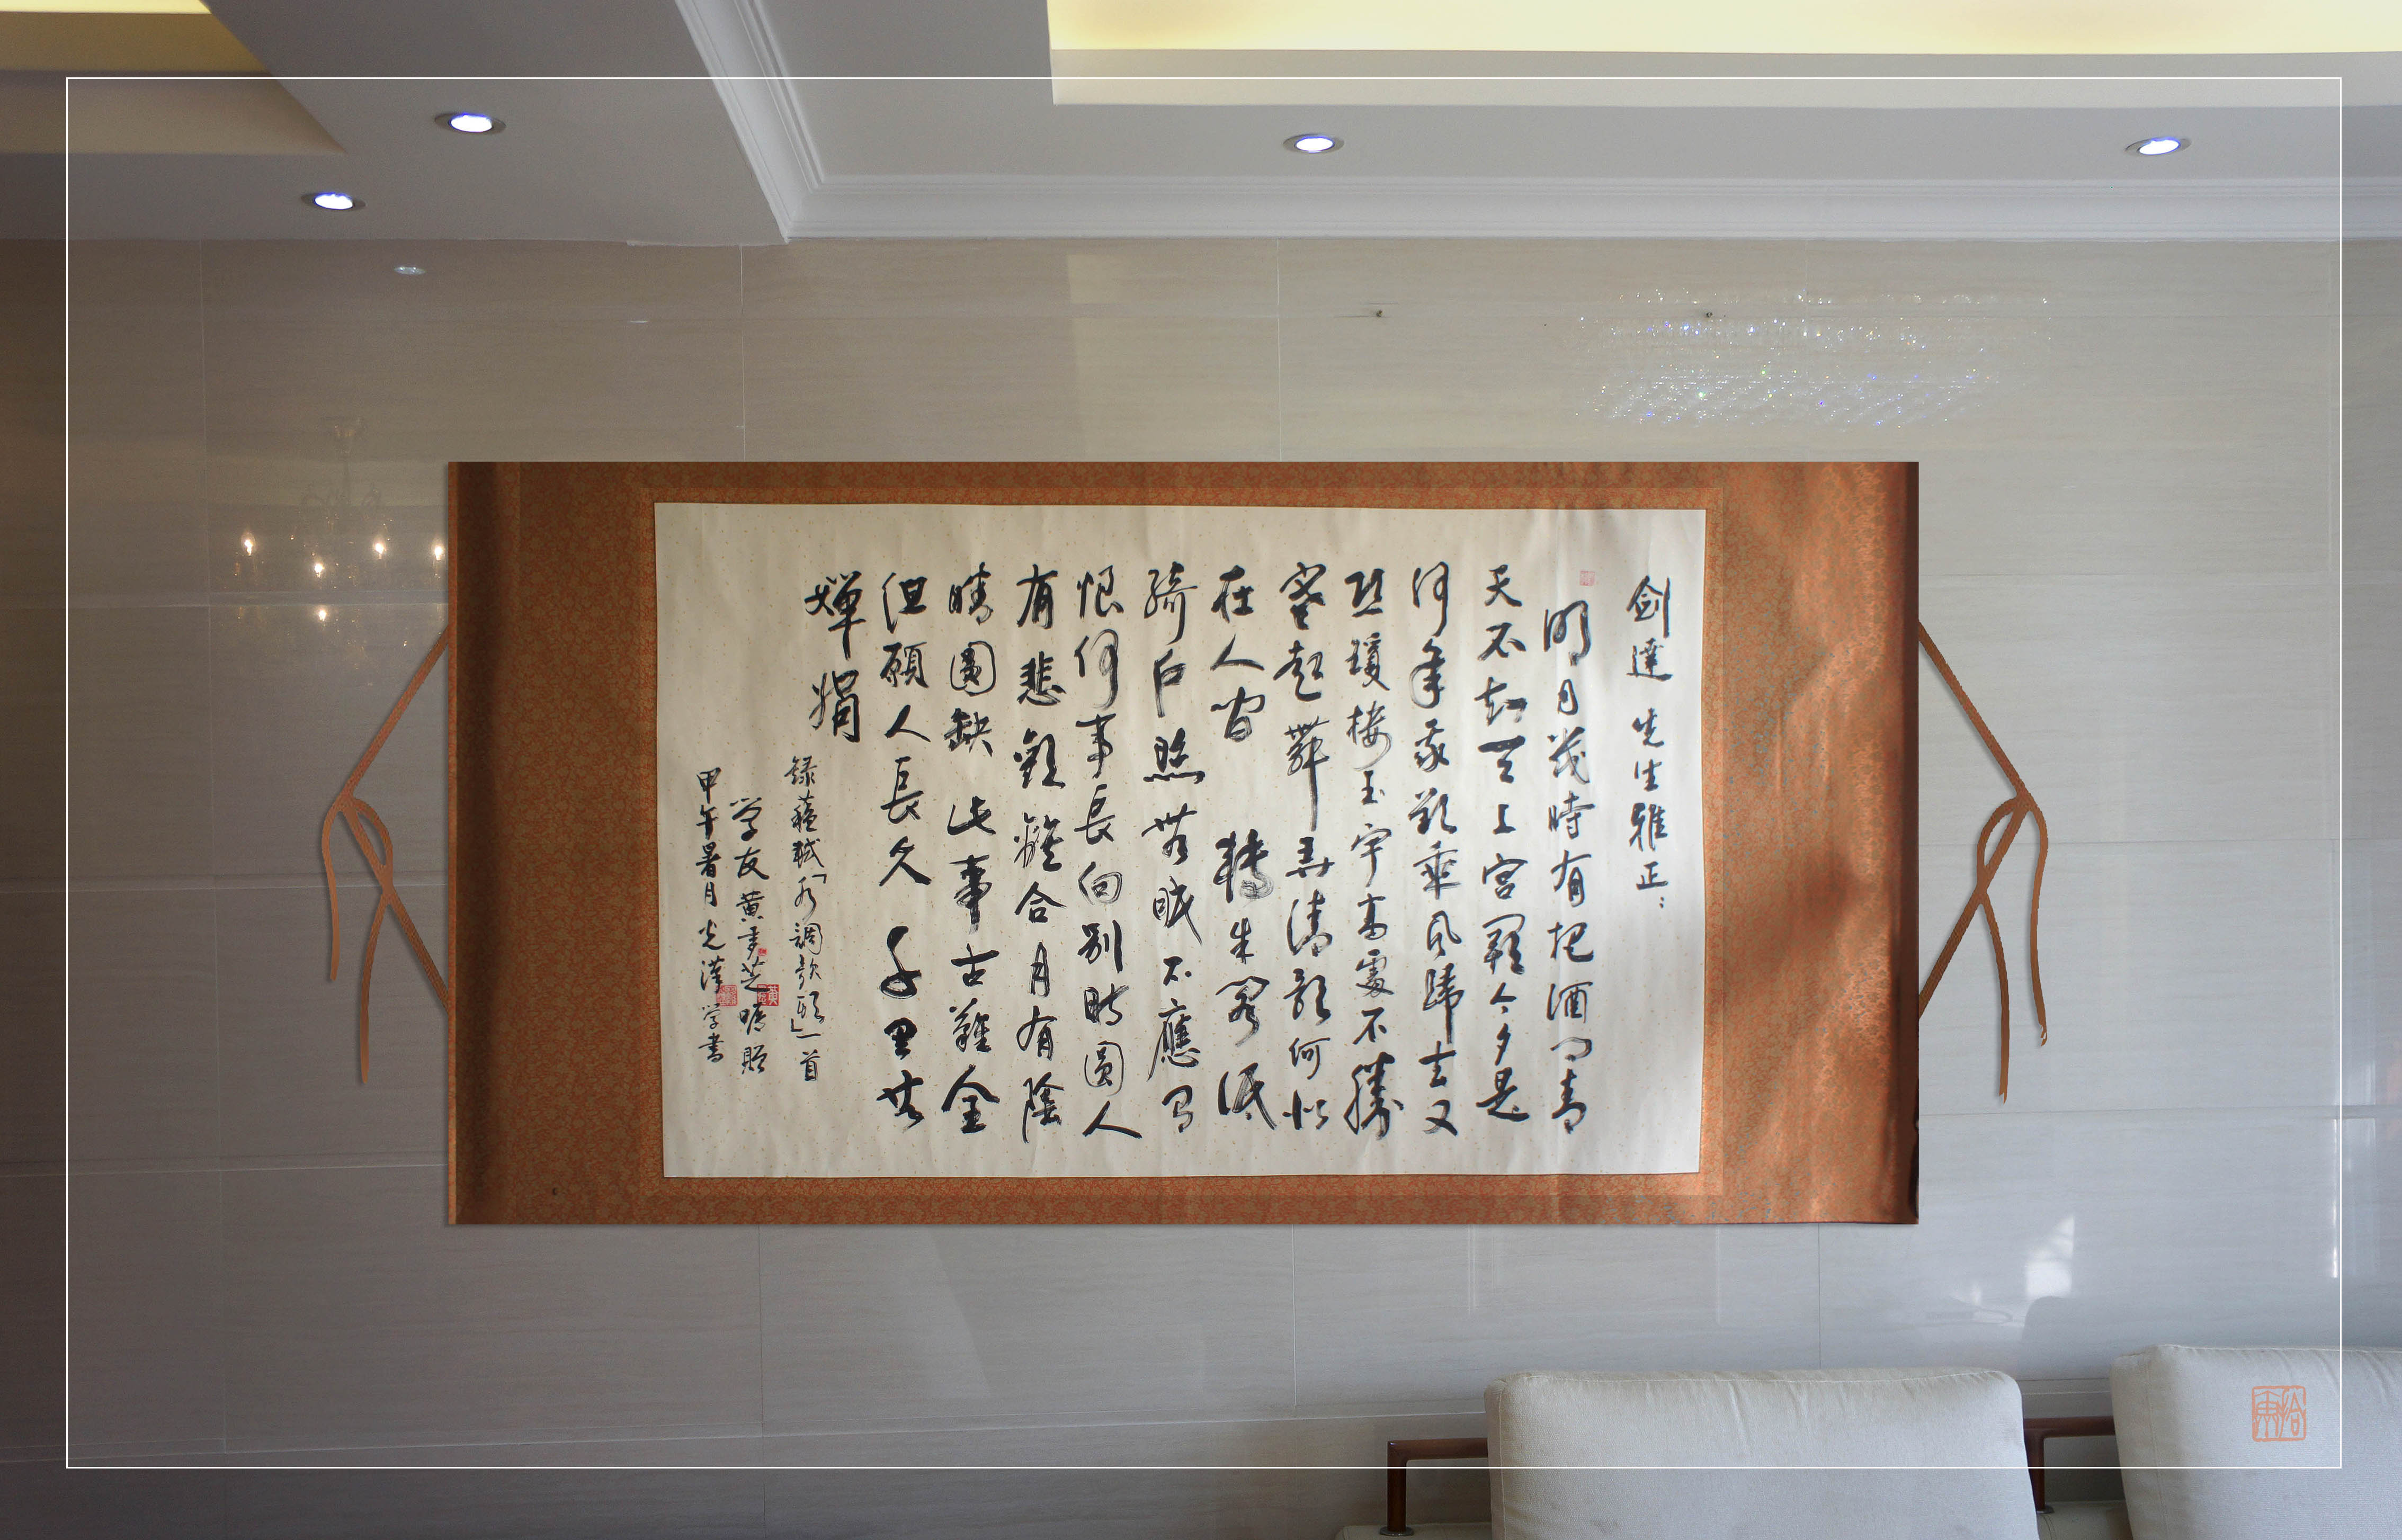 剑達先生雅正：
明月幾時有把酒問青
天不知天上宫闕今夕是
何年我欲乘風歸去又
恐瓊樓玉宇高處不勝
寒起舞弄清影何似
在人間 轉朱閣低
綺户照無眠不應有
恨何事長向别時圓人
有悲歡離合月有陰
晴圓缺此事古難全
但願人長久千里共
嬋娟
録蘇軾「水調歌頭」一首
学友黄芝嘱贈
甲午暑月光漢学書